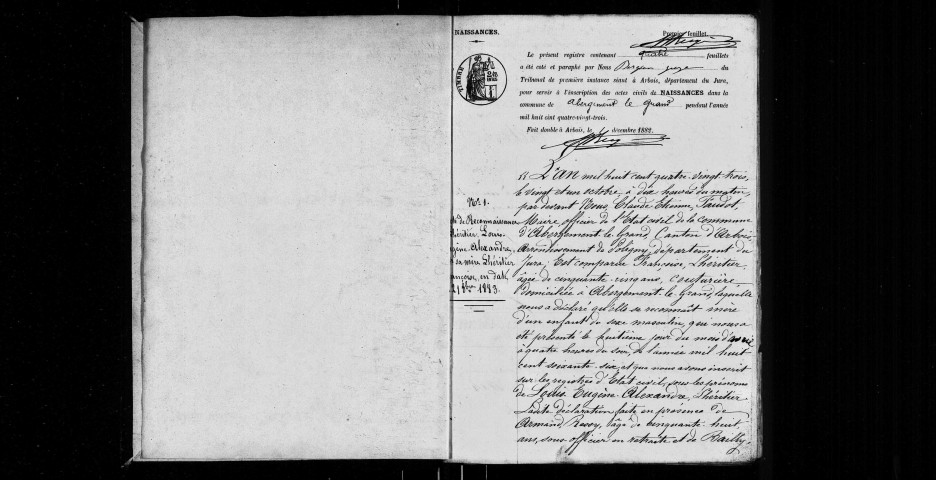 NAISSANCES.
Premier feuillet.
Le présent registre contenant quatre feuillets
a été coté et paraphé par Nous juge du
Tribunal de première instance séant à Arbois, département du Jura,
pour servir à l'inscription des actes civils de NAISSANCES dans la
commune de Abergement le Grand pendant l'année
mil huit cent quatre-vingt-trois.
Fait double à Arbois, le décembre 1882.
TIMBRE
N° 1.
de Reconnaissance
Lhéritier Louis
Eugène Alexandre,
sa mère Lhéritier
Françoise, en date
21 8bre 1883.
L'an mil huit cent quatre-vingt-trois,
le vingt et un octobre, à dix heures du matin,
par devant Nous, Claude Etienne Faudot,
Maire officier de l'Etat civil de la commune
d'Abergement le Grand, Canton d'Arbois
Arrondissement de Poligny, département du
Jura; Est comparue Françoise, Lhéritier,
âgée de cinquante cinq ans, couturière
domiciliée à Abergement-le-Grand, laquelle
nous a déclaré qu'elle se reconnaît mère
d'un enfant de sexe masculin, qui nous a
été présenté le huitième jour du mois d'
à quatre heures du soir, de l'année mil huit
cent soixante six, et que nous avons inscrit
sur les registres d'Etat civil, sous les prénoms
de Louis Eugène Alexandre, Lhéritier
déclaration faite en présence de
Armand, âgé de cinquante-huit
ans, sous-officier en retraite et de Bailly,